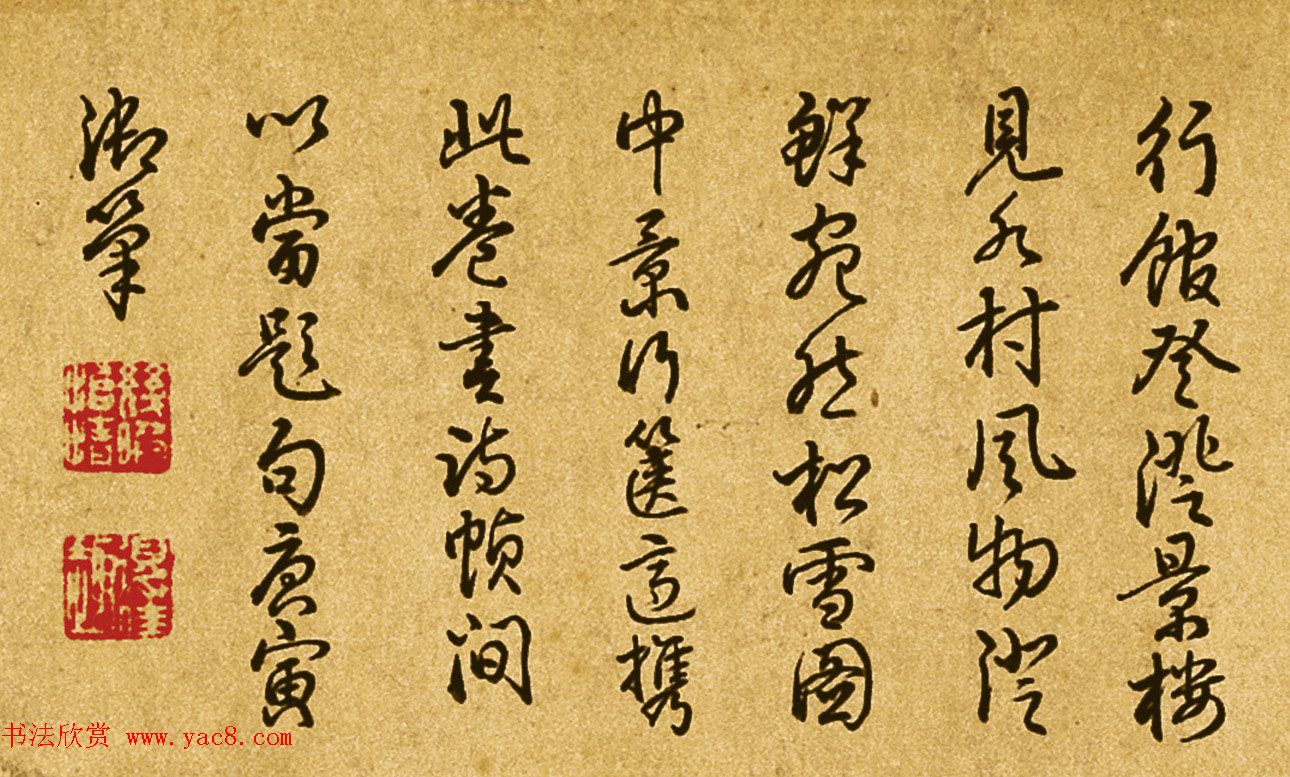 行館登澄景樓
見水村風物澄
鮮宛然松雪圖
中景行篋適攜
此卷書詩幀間
以當題句庚寅
御筆
幾暇怡情
书法欣赏 www.yac8.com